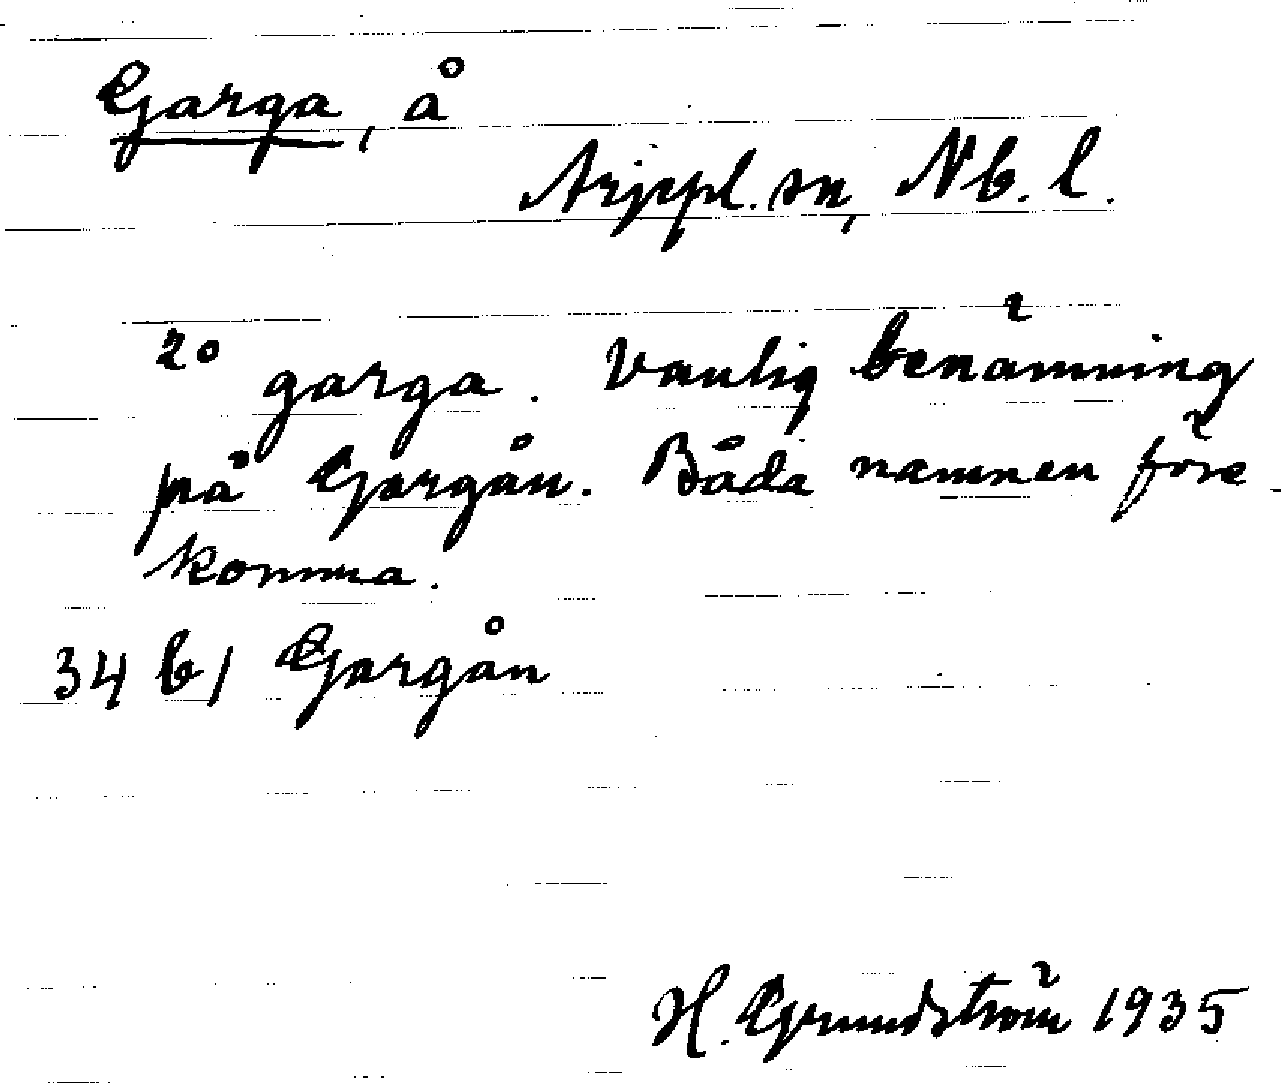 Garga, å
Arjepl. sn, Nb. l.
2º garga. Vanlig benämning
på Gargån. Båda namnen före
komma.
34 b1 Gargån
H. Grundström 1935